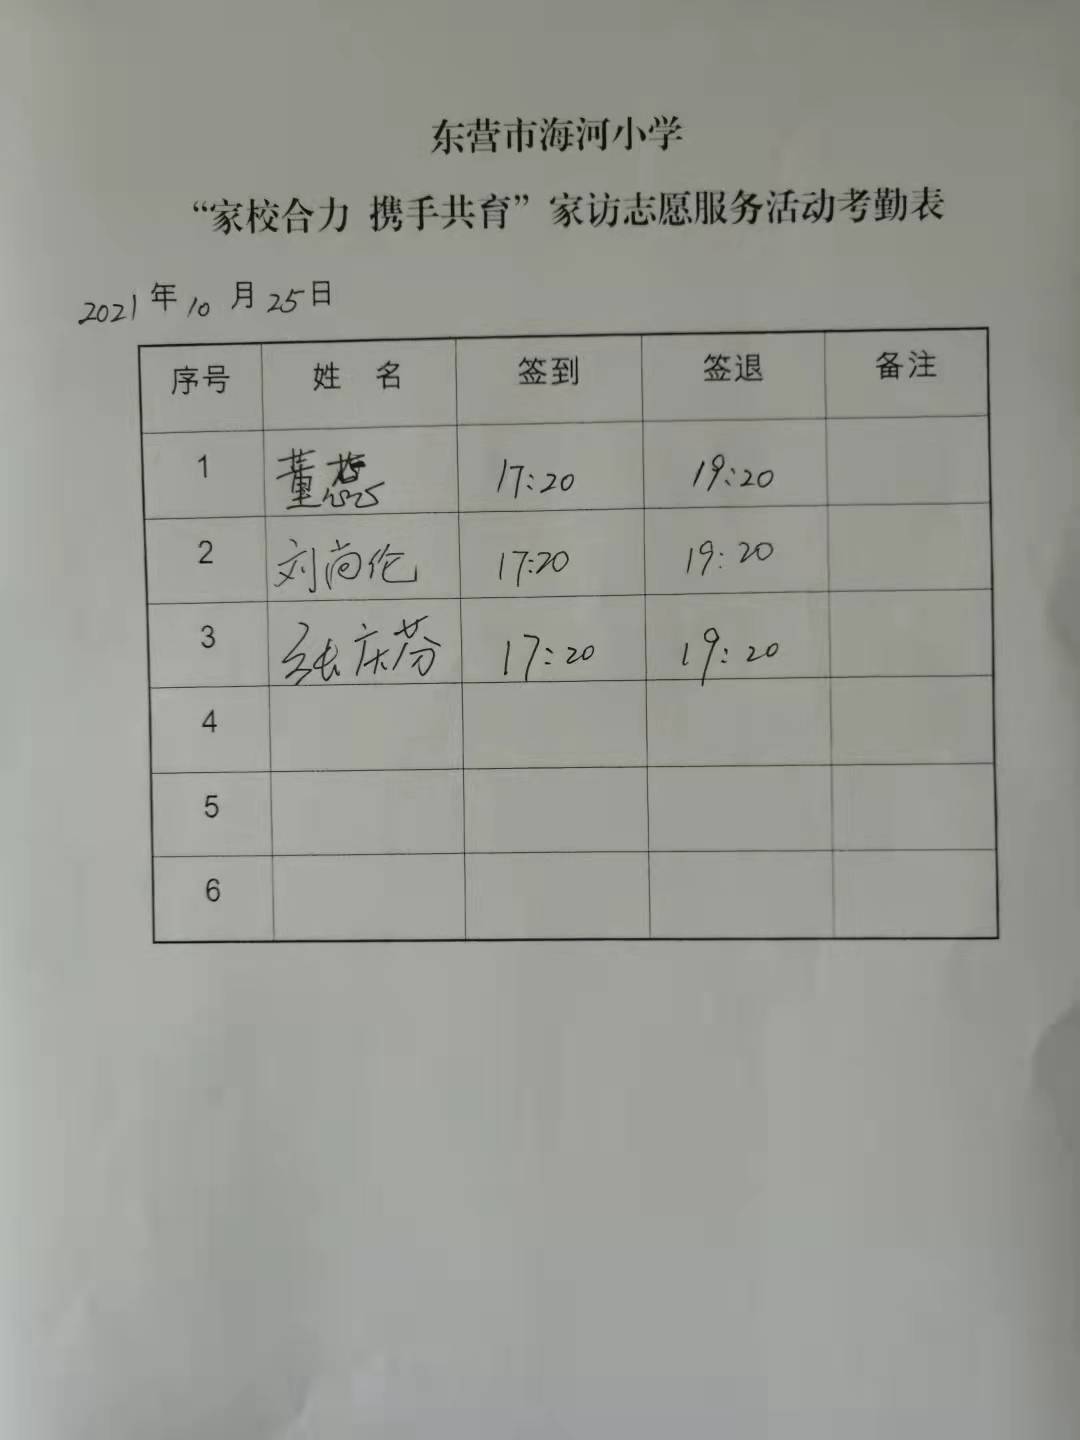 东营市海河小学
“家校合力 携手共育”家访志愿服务活动考勤表
2021年10月25日
序号 姓 名 签到 签退 备注
1 董蕊 17:20 19:20
2 刘尚伦 17:20 19:20
3 张庆芬 17:20 19:20
4
5
6